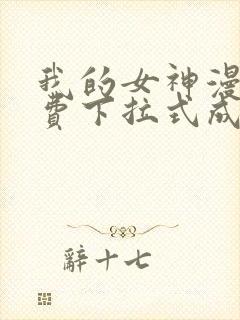 我的女神漫
費下拉式成
辭十七